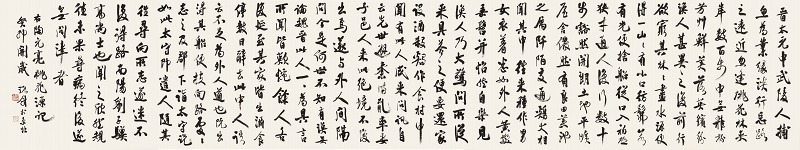 晉太元中武陵人捕
魚為業緣溪行忘路
之遠近忽逢桃花林夾
岸數百步中無雜樹
芳草鮮美落英繽紛
漁人甚異之復前行
欲窮其林林盡水源便
得一山山有小口髣髴若
有光便捨船從口入初極
狹才通人復行數十
步豁然開朗土地平曠
屋舍儼然有良田美池桑竹
之屬阡陌交通雞犬相
聞其中往來種作男
女衣著悉如外人黃髮
垂髫並怡然自樂見
漁人乃大驚問所從
來具答之便要還家
設酒殺雞作食村中
聞有此人咸來問訊自
云先世避秦時亂率妻
子邑人來此絕境不復
出焉遂與外人間隔
問今是何世不知有漢無
論魏晉此人一一為具言
所聞皆歎惋餘人各
復延至其家皆出酒食
停數日辭去此中人語
云不足為外人道也既出
得其船便扶向路處處
志之及郡下詣太守說
如此太守即遣人隨其
往尋向所志遂迷不
復得路南陽劉子驥
高尚士也聞之欣然規
往未果尋病終後遂
無問津者
右陶元亮桃花源記
癸卯